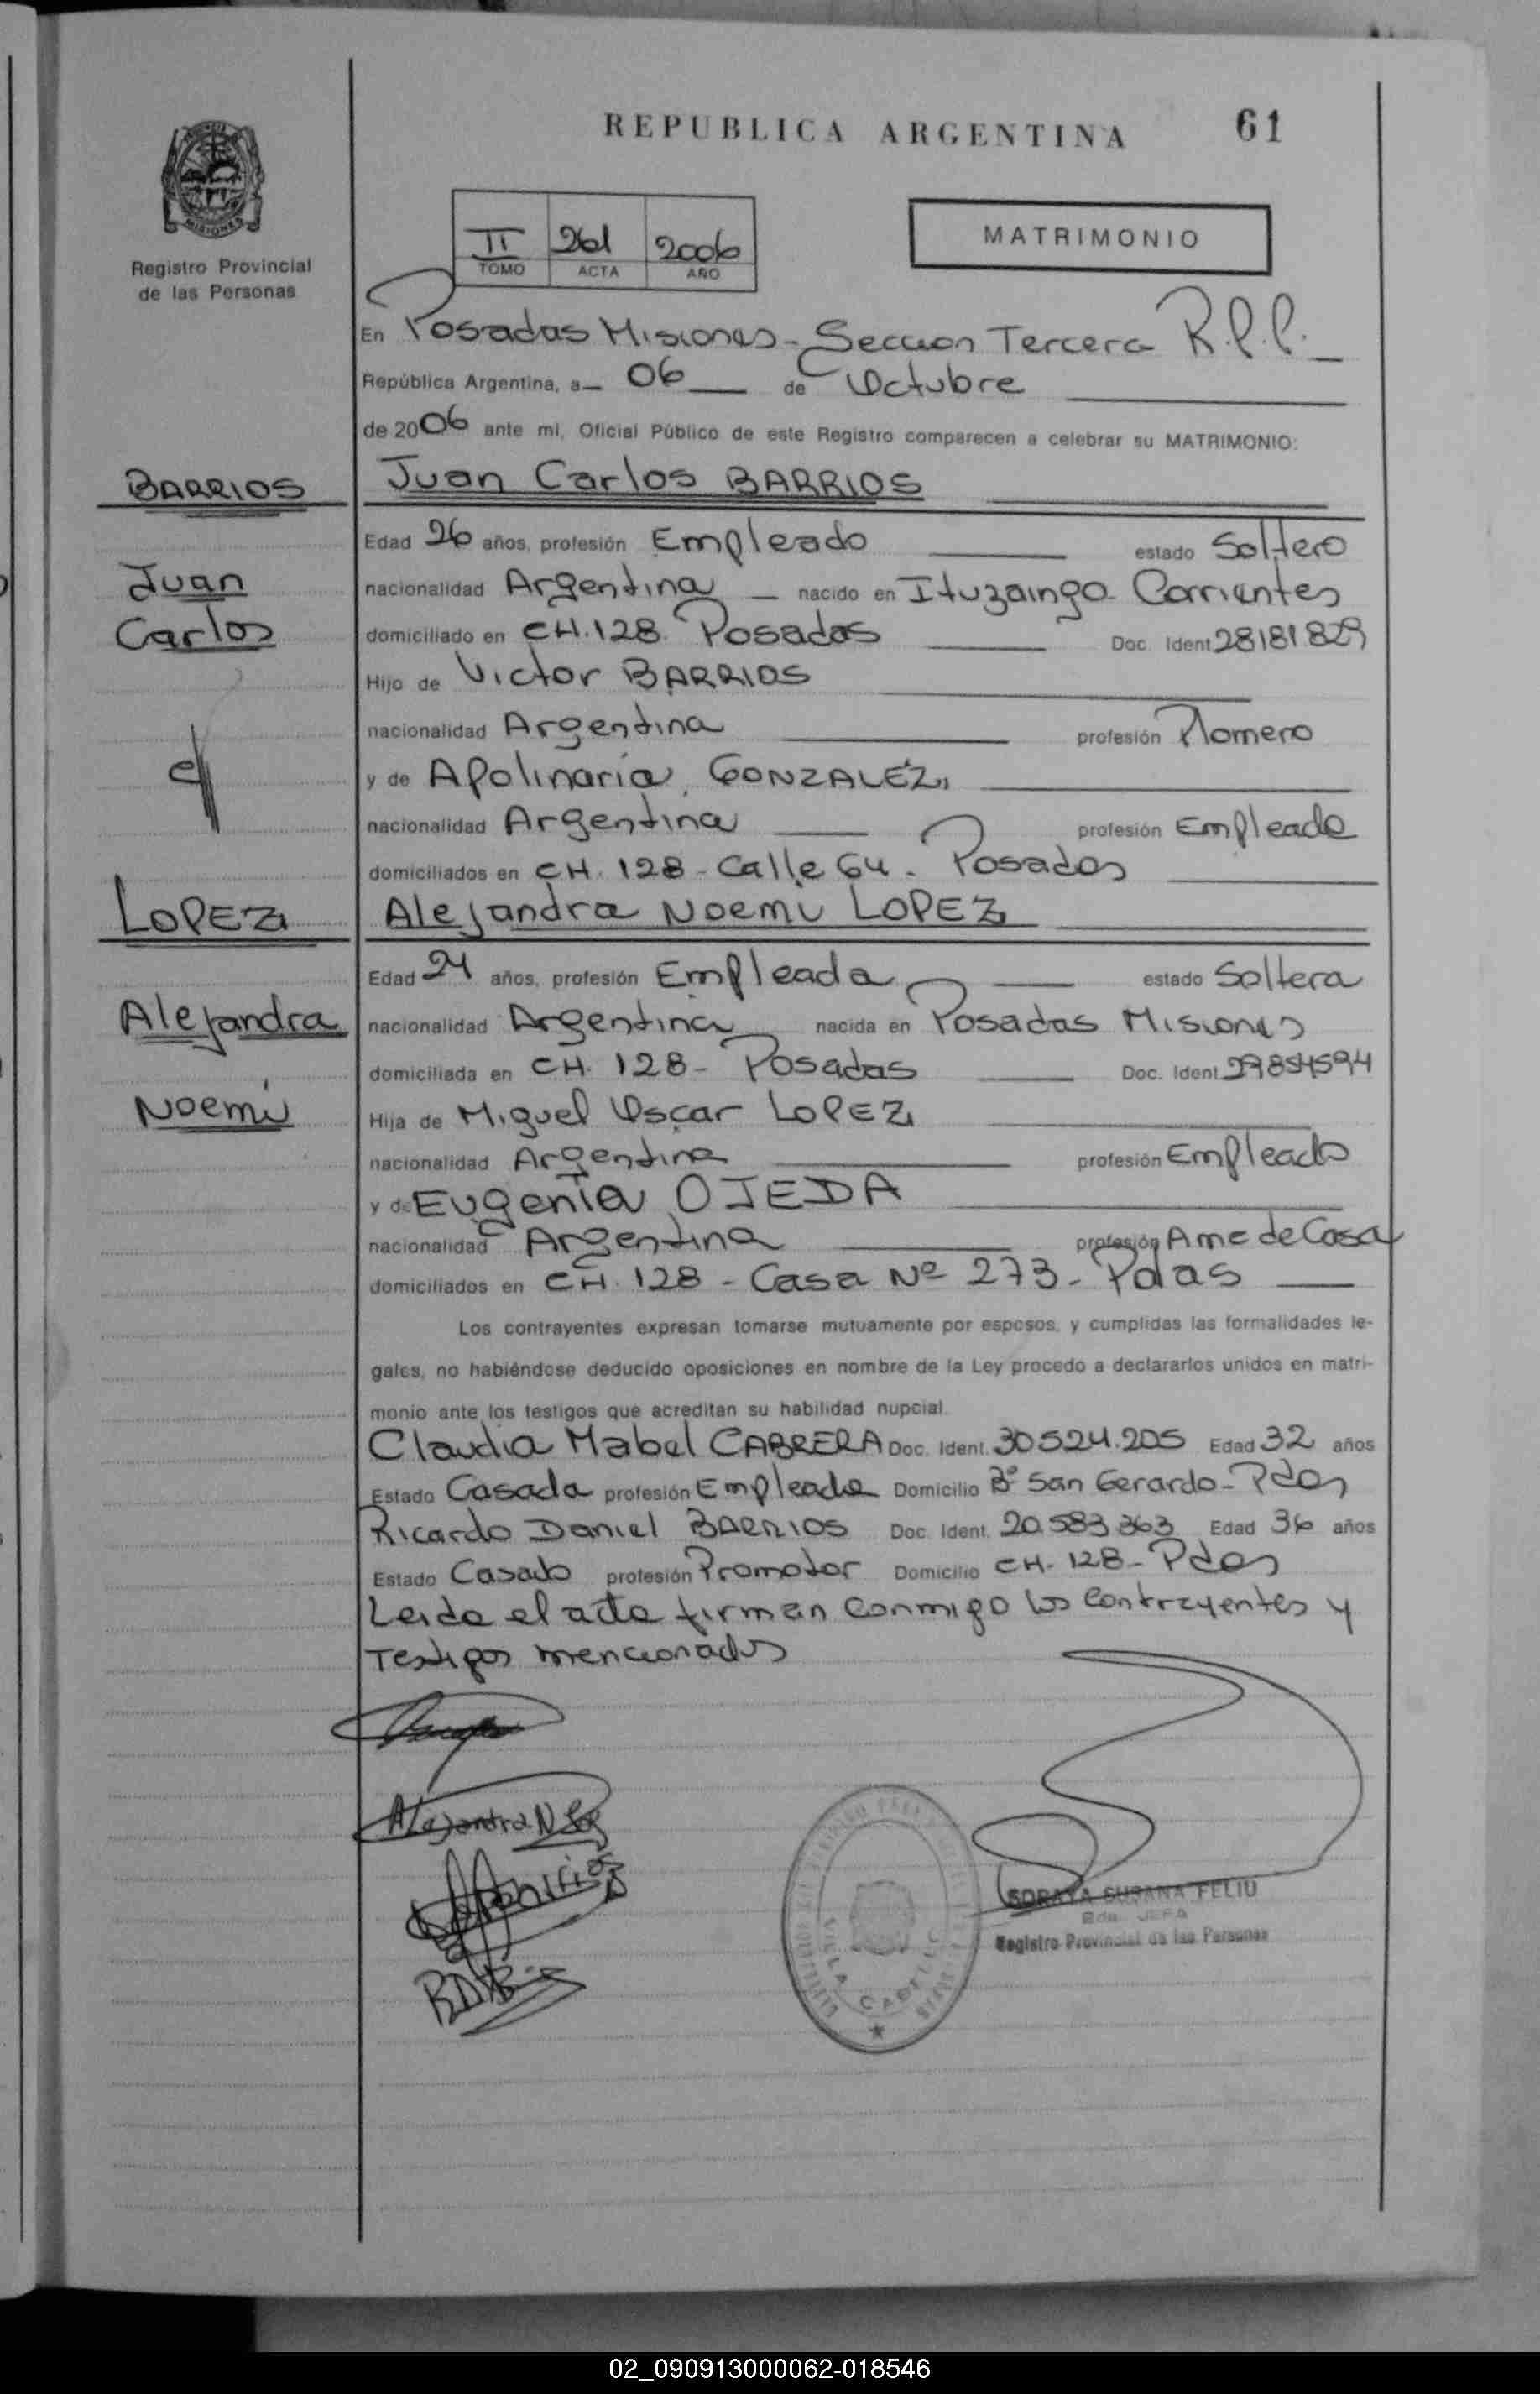 REPUBLICA ARGENTINA 61
MISIONES
Registro Provincial
de las Personas
II 261 2006
TOMO ACTA AÑO
MATRIMONIO
En Posadas Misiones - Seccion Tercera R.P.P.
República Argentina, a 06 de Octubre
de 2006 ante mi, Oficial Público de este Registro comparecen a celebrar su MATRIMONIO:
BARRIOS Juan Carlos BARRIOS
Edad 26 años, profesión Empleado estado Soltero
Juan nacionalidad Argentina nacido en Ituzaingo Corrientes
Carlos domiciliado en CH. 128 Posadas Doc. Ident 28181829
Hijo de Victor BARRIOS
nacionalidad Argentina profesión Plomero
c/ y de Apolinaria GONZALEZ
nacionalidad Argentina profesión Empleada
domiciliados en CH. 128 - Calle 64 - Posadas
LOPEZ Alejandra Noemi LOPEZ
Edad 24 años, profesión Empleada estado Soltera
Alejandra nacionalidad Argentina nacida en Posadas Misiones
domiciliada en CH. 128 - Posadas Doc. Ident 29854594
Noemi Hija de Miguel Oscar LOPEZ
nacionalidad Argentina profesión Empleado
y de Eugenia OJEDA
nacionalidad Argentina profesión Ama de Casa
domiciliados en CH. 128 - Casa Nº 273 - Pdas
Los contrayentes expresan tomarse mutuamente por esposos, y cumplidas las formalidades le-
gales, no habiéndose deducido oposiciones en nombre de la Ley procedo a declararlos unidos en matri-
monio ante los testigos que acreditan su habilidad nupcial.
Claudia Mabel CABRERA Doc. Ident. 30.524.205 Edad 32 años
Estado Casada profesión Empleada Domicilio Bº San Gerardo - Pdas
Ricardo Daniel BARRIOS Doc. Ident. 20.583.363 Edad 36 años
Estado Casado profesión Promotor Domicilio CH. 128 - Pdas
Leida el acta firman conmigo los contrayentes y
Testigos mencionados
Alejandra N
VILLA CABELLO
SORAYA SUSANA FELIU
JEFA
Registro Provincial de las Personas
02_090913000062-018546